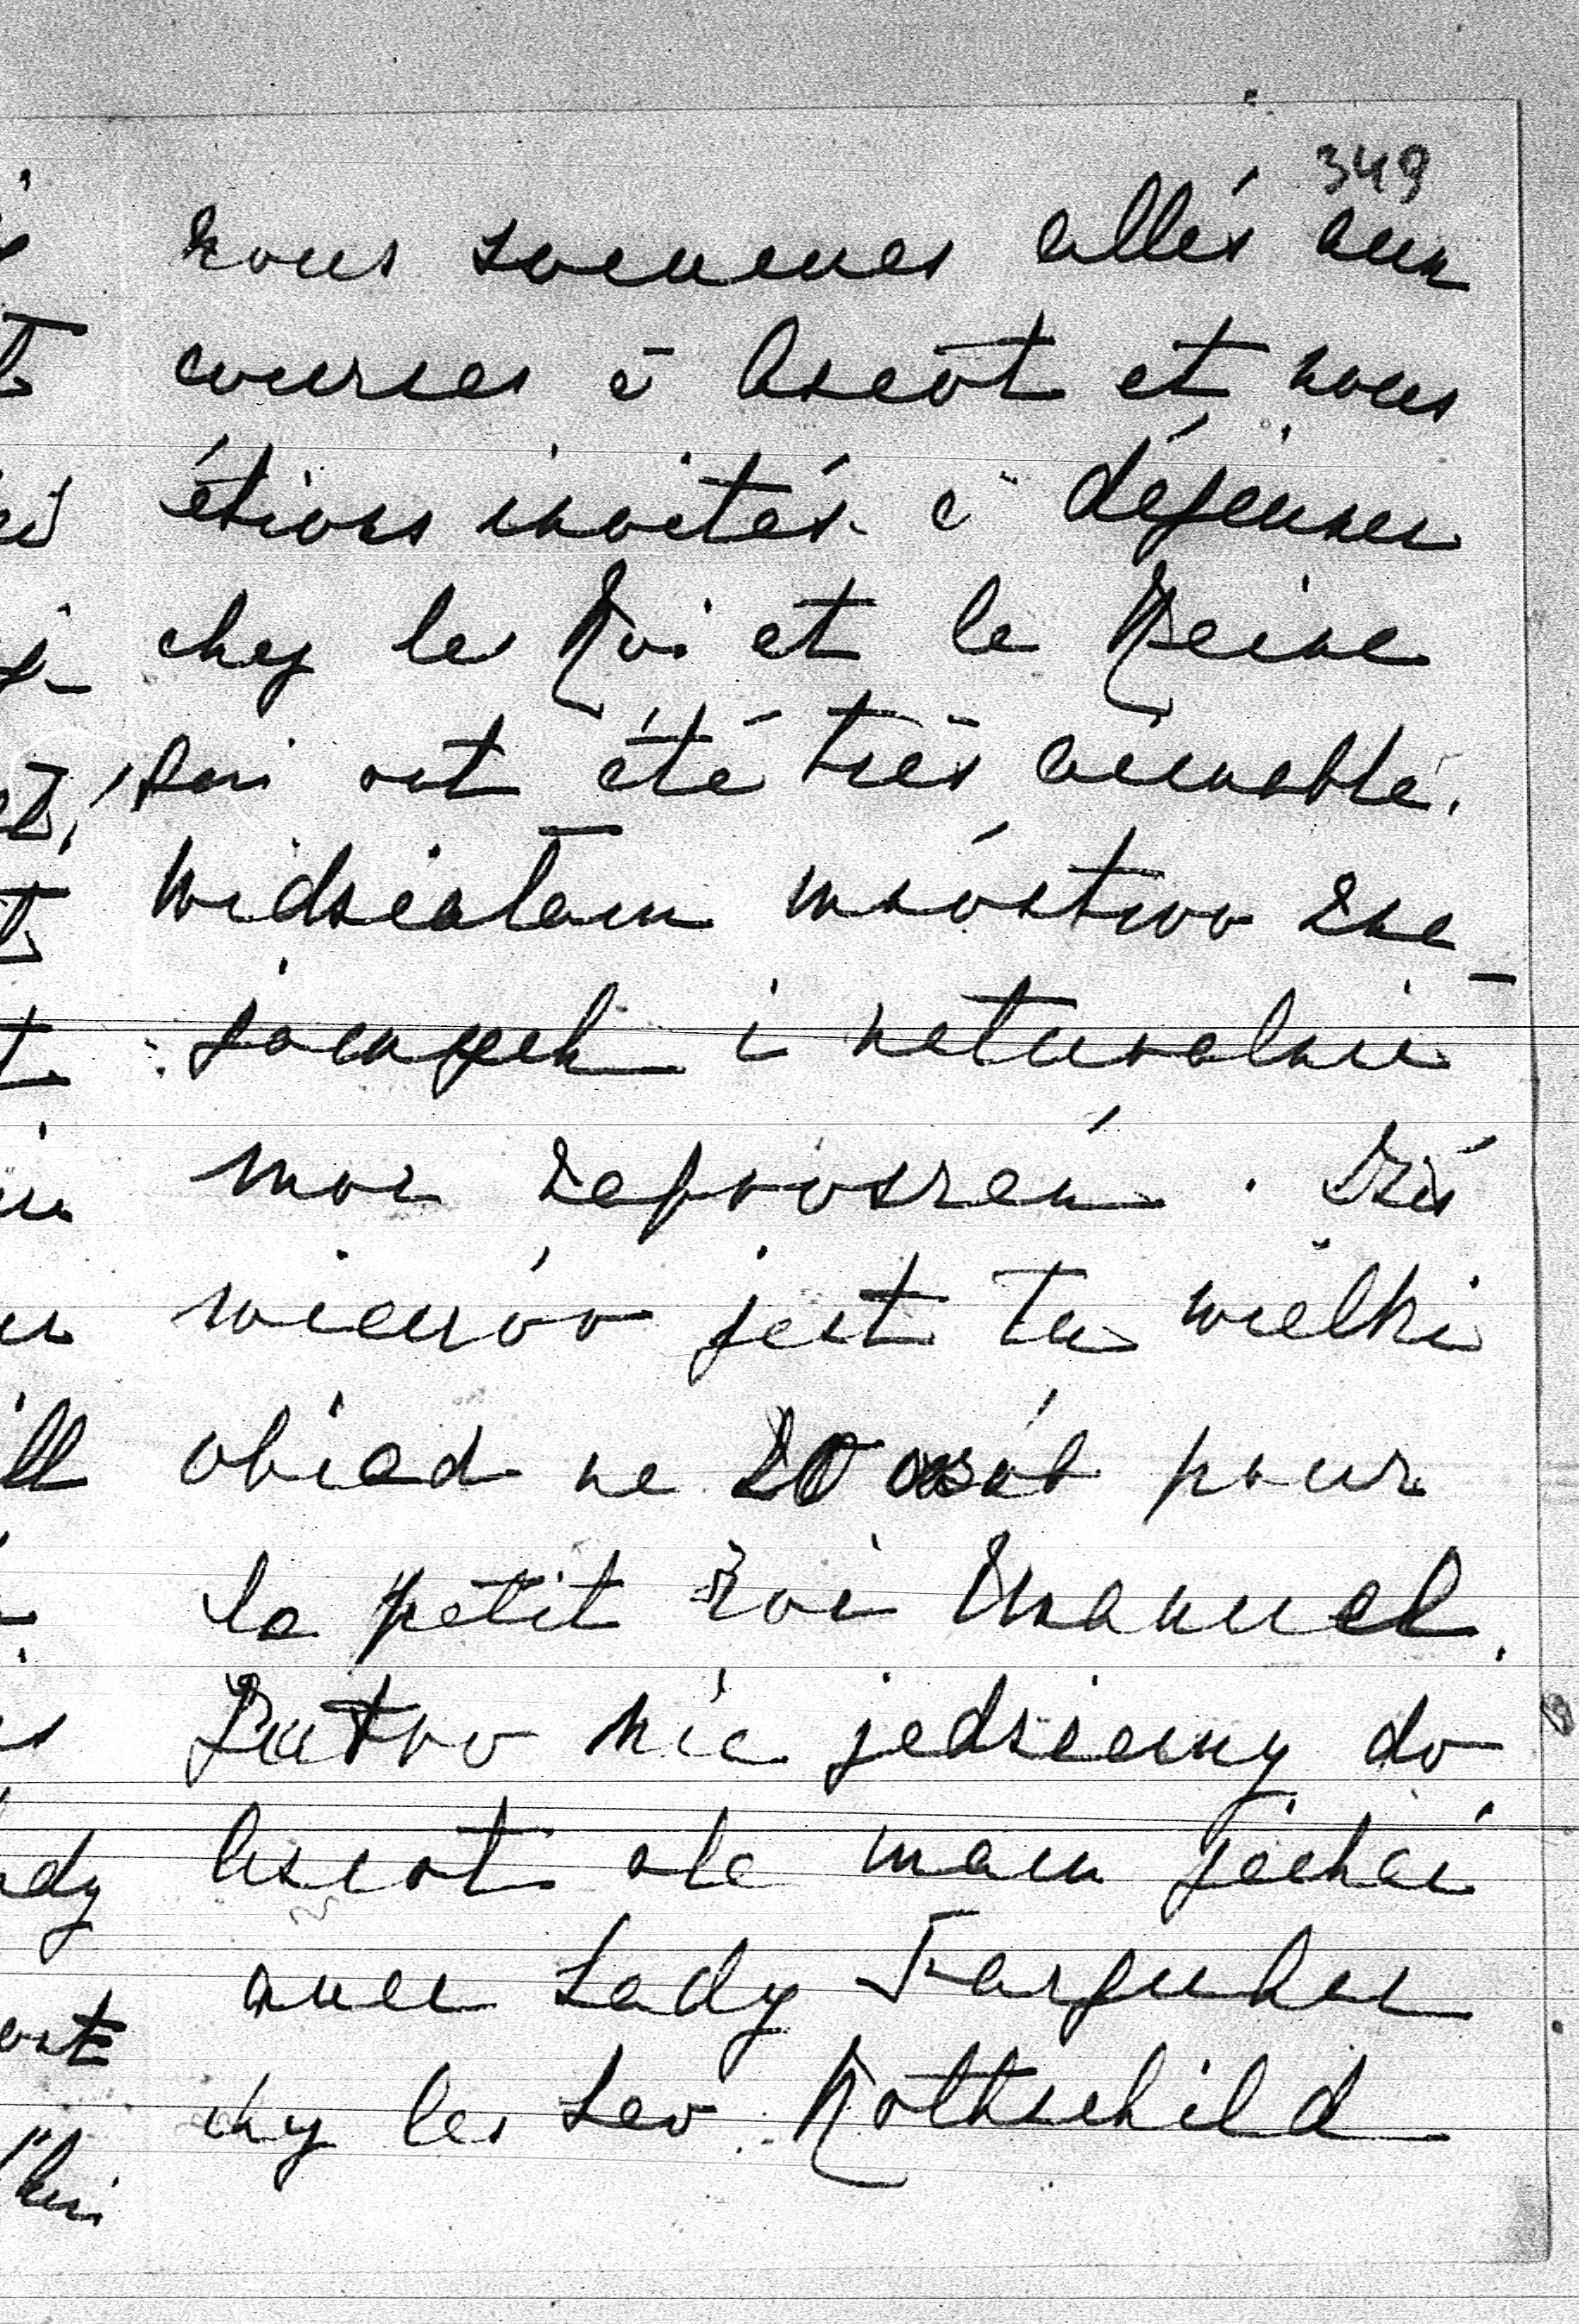 349
nous sommes allés aux
courses à Ascot et nous
étions invités à déjeuner
chez le Roi et la Reine
qui ont été très aimable.
Widziałam mnóstwo zna-
jomych i naturalnie
moc zaproszeń. Dziś
wieczór jest tu wielki
obiad na 20 osób pour
le petit roi Manuel.
Jutro nie jedziemy do
Ascot ale mam jechać
avec Lady Farquhar
chez les Leo Rothschild